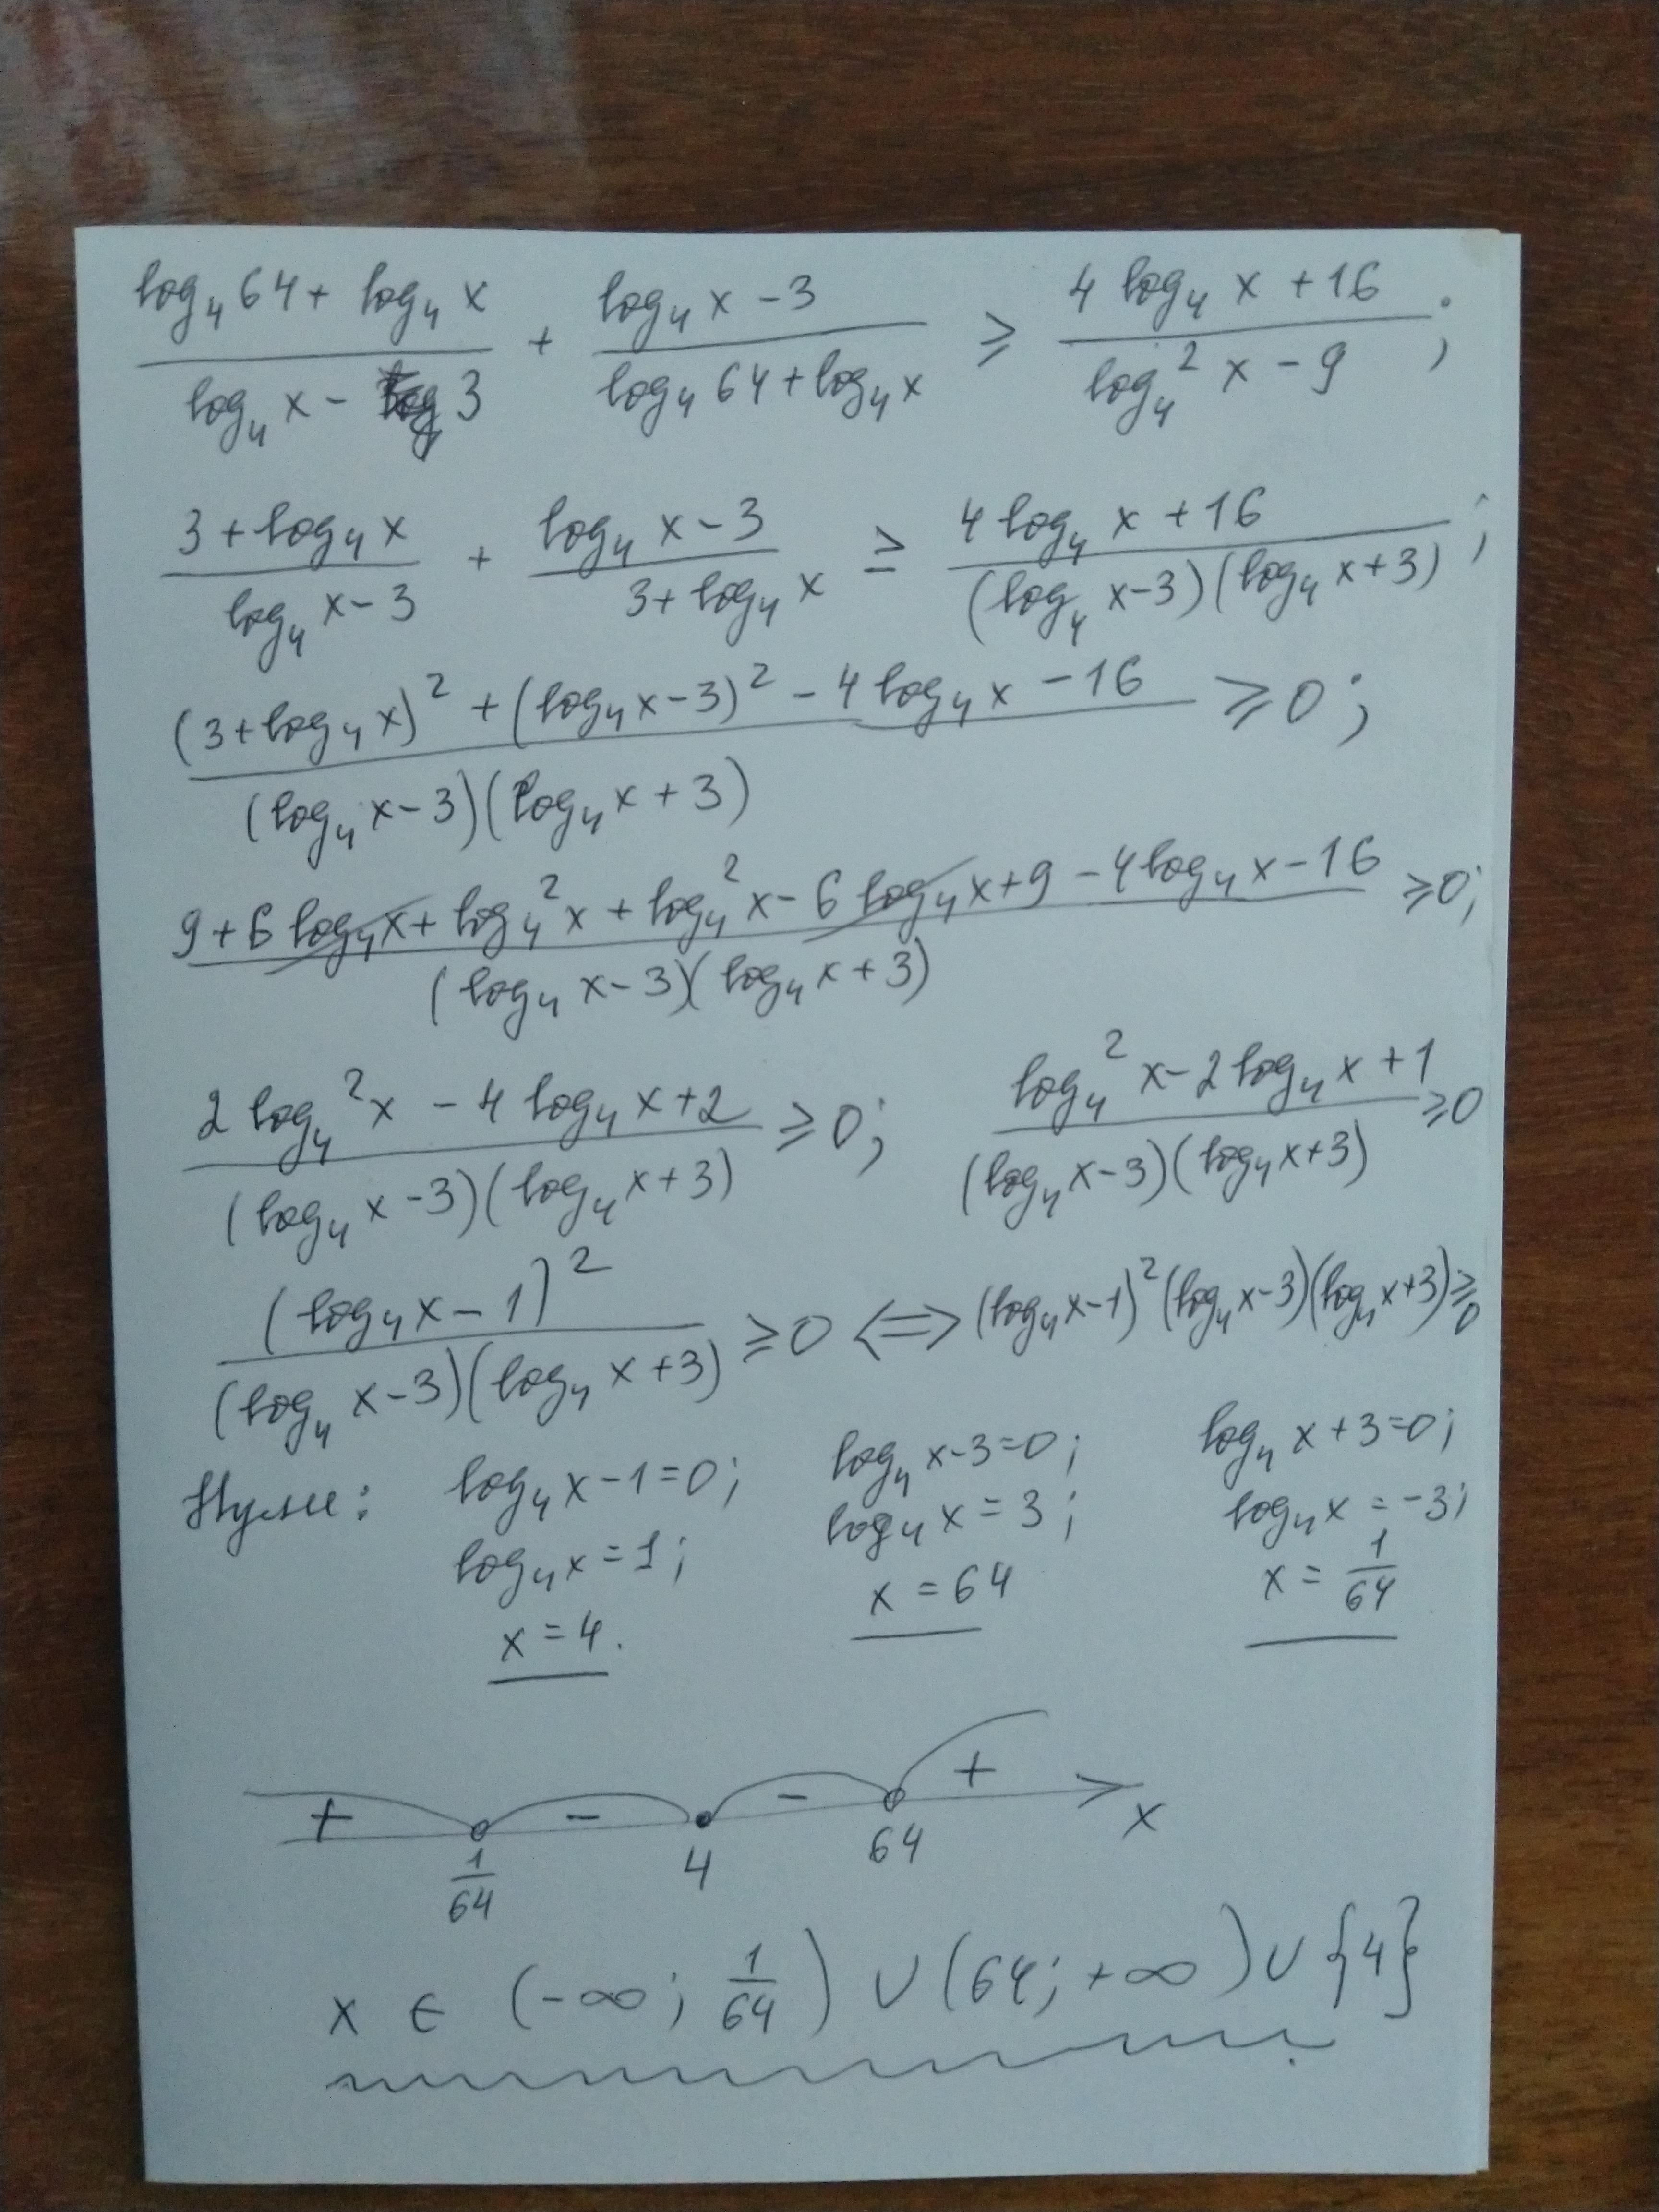 (log₄ 64 + log₄ x)/(log₄ x - 3) + (log₄ x - 3)/(log₄ 64 + log₄ x) ≥ (4 log₄ x + 16)/(log₄² x - 9);
(3 + log₄ x)/(log₄ x - 3) + (log₄ x - 3)/(3 + log₄ x) ≥ (4 log₄ x + 16)/((log₄ x - 3)(log₄ x + 3));
((3 + log₄ x)² + (log₄ x - 3)² - 4 log₄ x - 16)/((log₄ x - 3)(log₄ x + 3)) ≥ 0;
(9 + 6 log₄ x + log₄² x + log₄² x - 6 log₄ x + 9 - 4 log₄ x - 16)/((log₄ x - 3)(log₄ x + 3)) ≥ 0;
(2 log₄² x - 4 log₄ x + 2)/((log₄ x - 3)(log₄ x + 3)) ≥ 0; (log₄² x - 2 log₄ x + 1)/((log₄ x - 3)(log₄ x + 3)) ≥ 0
(log₄ x - 1)²/((log₄ x - 3)(log₄ x + 3)) ≥ 0 <=> (log₄ x - 1)² (log₄ x - 3)(log₄ x + 3) ≥ 0
Нули: log₄ x - 1 = 0; log₄ x - 3 = 0; log₄ x + 3 = 0;
log₄ x = 1; log₄ x = 3; log₄ x = -3;
x = 4. x = 64 x = 1/64
+ - - + x
1/64 4 64
x ∈ (-∞; 1/64) ∪ (64; +∞) ∪ {4}